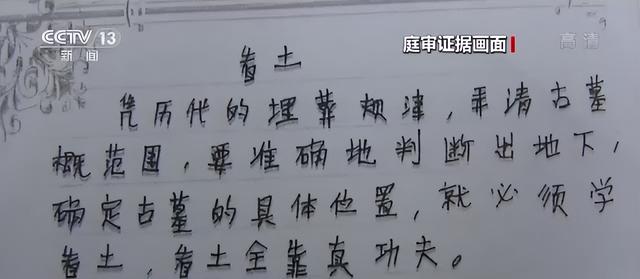 CCTV 13
新闻
庭审证据画面
高清
看土
凭历代的埋葬规律，弄清古墓
概范围，要准确地判断出地下，
确定古墓的具体位置，就必须学
看土，看土全靠真功夫。